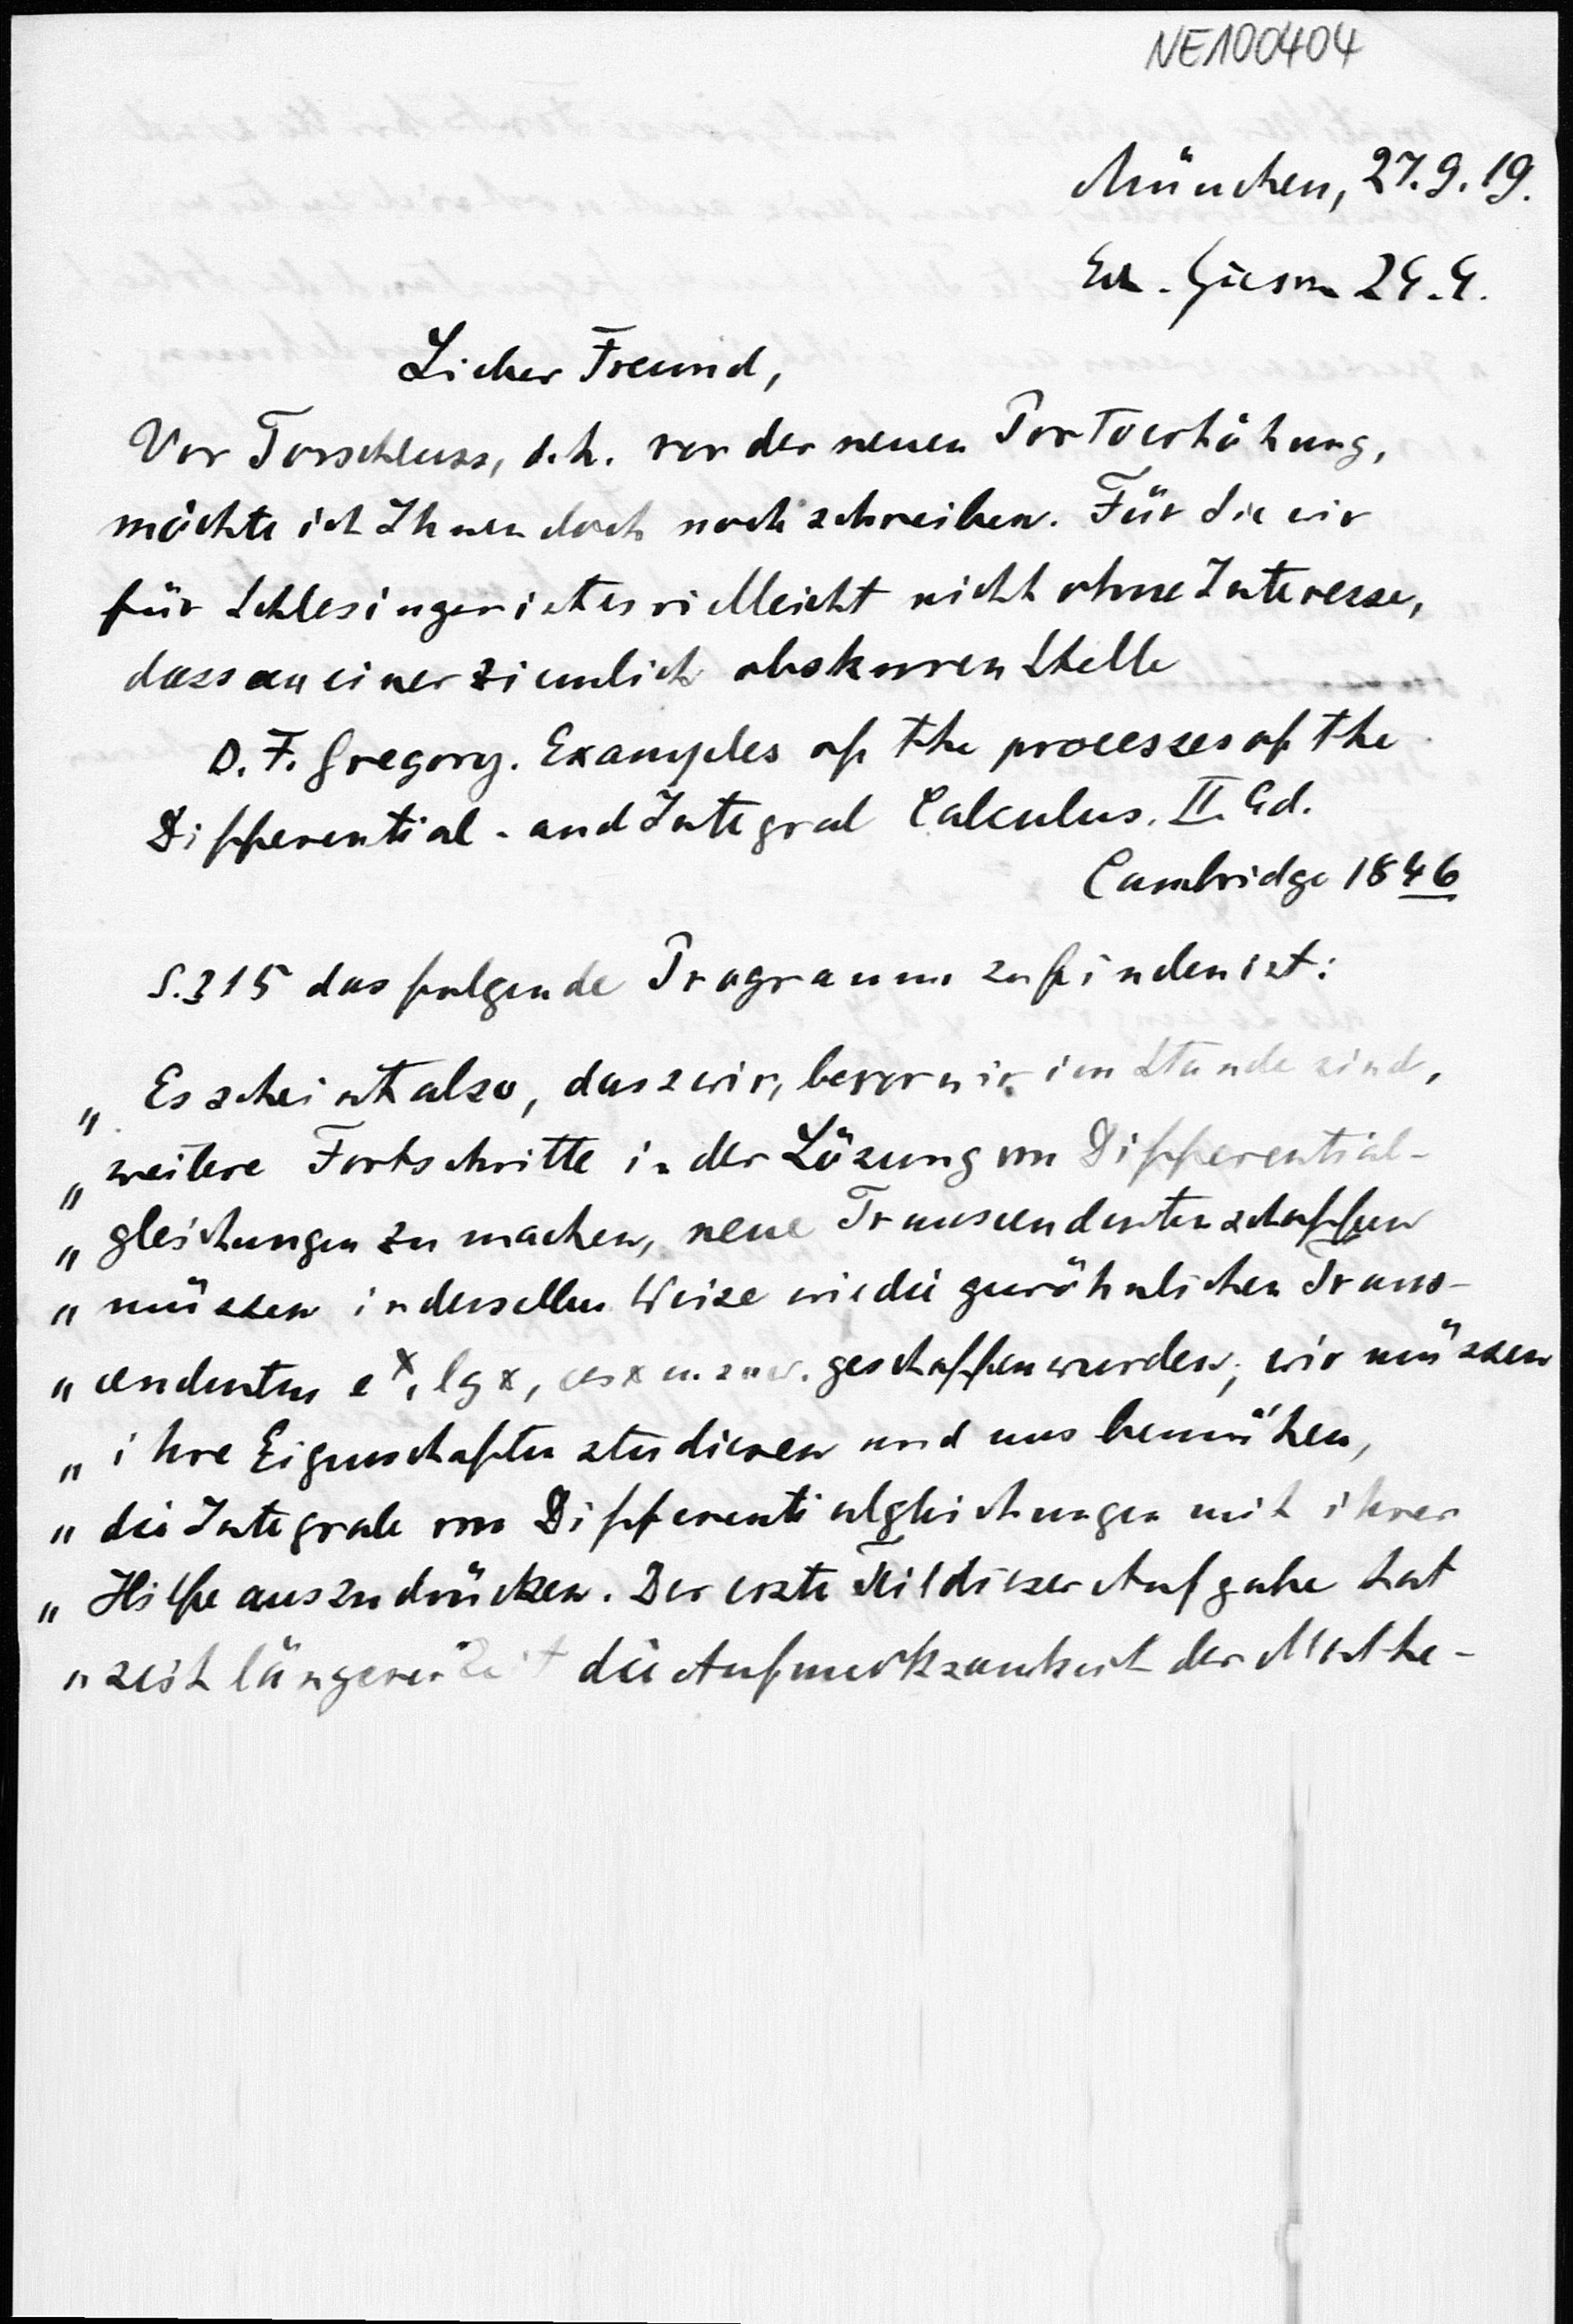 NE100404
München, 27.9.19.
24.4.
Lieber Freund,
Vor Torschluss, d.h. vor der neuen Portoerhöhung,
möchte ich Ihnen doch noch schreiben. Für Sie wie
für Schlesinger ist es vielleicht nicht ohne Interesse,
dass an einer ziemlich obskuren Stelle
D. F. Gregory. Examples of the processes of the
Differential- and Integral Calculus. II. Ed.
Cambridge 1846
S. 315 das folgende Programm zu finden ist:
„ Es scheint also, dass wir, bevor wir im Stande sind,
„ weitere Fortschritte in der Lösung von Differential-
„ gleichungen zu machen, neue Transcendenten schaffen
„ müssen in derselben Weise wie die gewöhnlichen Trans-
„ cendenten e^x, lg x, cos x u.s.w. geschaffen wurden; wir müssen
„ ihre Eigenschaften studieren und uns bemühen,
„ die Integrale von Differentialgleichungen mit ihrer
„ Hilfe auszudrücken. Der erste Teil dieser Aufgabe hat
„ seit längerer Zeit die Aufmerksamkeit der Mathe-